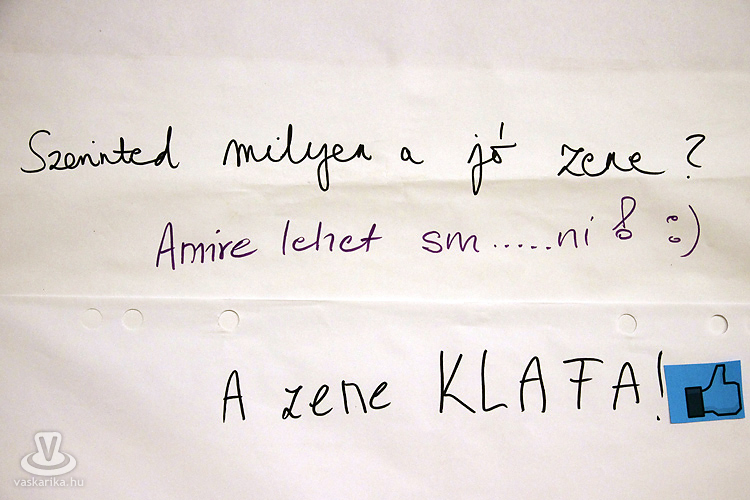 Szerinted milyen a jó zene?
Amire lehet sm.....ni! :)
A zene KLAFA!
V
vaskarika.hu